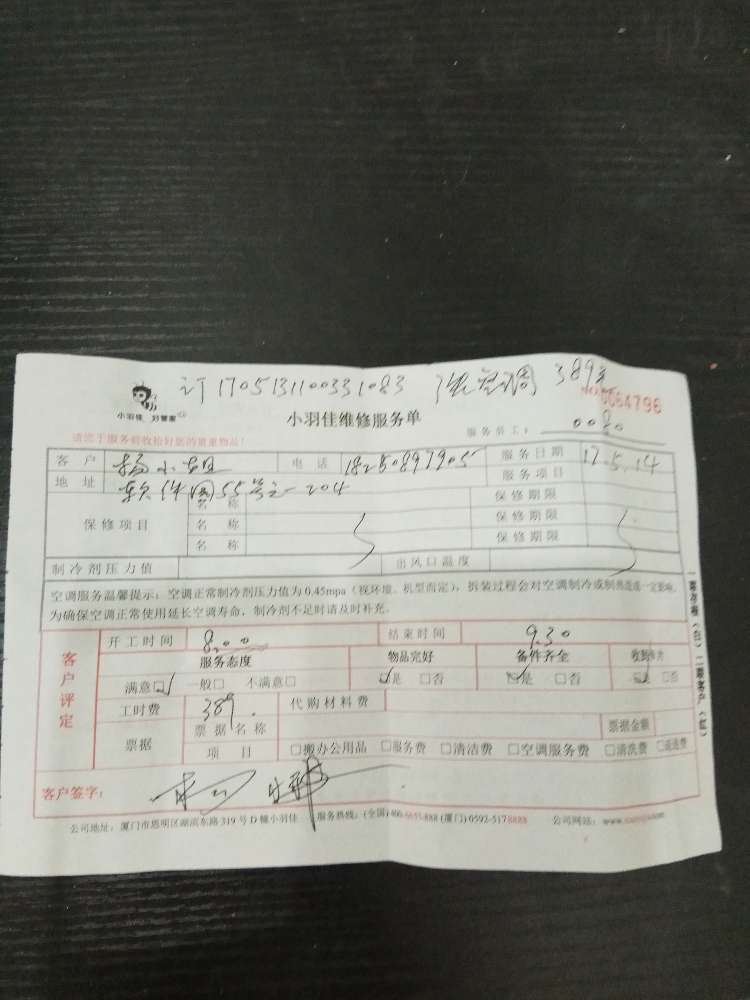 订1705131100331083 洗空调 389元
0064796
小羽佳 好管家
小羽佳维修服务单
服务员工: 0080
请您于服务前收拾好您的贵重物品!
客户 杨小姐 电话 18250897905 服务日期 17.5.14
地址 软件园55号之一204 服务项目
保修项目 名称 保修期限
名称 保修期限
名称 保修期限
制冷剂压力值 出风口温度
空调服务温馨提示:空调正常制冷剂压力值为0.45mpa(视环境、机型而定),拆装过程会对空调制冷或制热造成一定影响,
为确保空调正常使用延长空调寿命,制冷剂不足时请及时补充。
客户评定
开工时间 8.00 结束时间 9.30
服务态度 物品完好 备件齐全
满意☑ 一般□ 不满意□ ☑是 □否 ☑是 □否 ☑是 □否
工时费 389. 代购材料费
票据 票据名称 票据金额
项目 □搬办公用品 □服务费 □清洁费 □空调服务费 □清洗费
客户签字:
公司地址:厦门市思明区湖滨东路319号D幢小羽佳 服务热线:(全国)400-6655-888 (厦门)0592-5178888 公司网站: